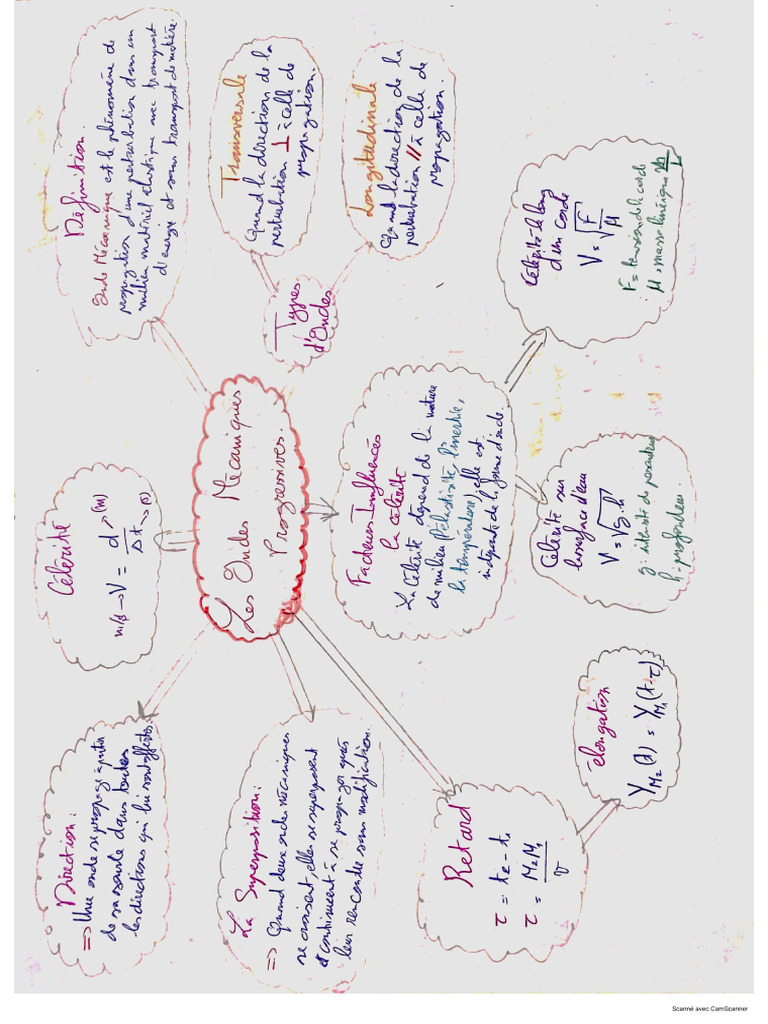 Les Ondes Mécaniques
Progressives.
Définition.
Onde Mécanique est le phénomène de
propagation d'une perturbation dans un
milieu matériel élastique avec transport
d'énergie et sans transport de matière.
Types
d'Ondes
Transversale
Quand la direction de la
perturbation ⊥ à celle de
propagation.
Longitudinale
Quand la direction de la
perturbation // à celle de
propagation.
Célérité
m/s → V = d → (m)
Δt → (s)
Facteurs Influencés
la célérité
La célérité dépend de la nature
de milieu (l'élasticité, l'inertie,
la température), elle est
de la forme d'onde.
Célérité le long
d'un corde
V = √F/μ
F = tension de la corde
μ = masse linéique m/L
Célérité sur
la surface d'eau
V = √g.h
g: intensité de pesanteur
h: profondeur.
Direction:
=> Une onde se propage à partir
de sa source dans toutes
les directions qui lui sont offerts.
La Superposition:
=> Quand deux ondes mécaniques
se croisent, elles se superposent
et continuent à se propager après
leur rencontre sans modification.
Retard
τ = t₂ - t₁
τ = M₂M₁/v
élongation
Y_M₂(t) = Y_M₁(t-τ)
Scanné avec CamScanner